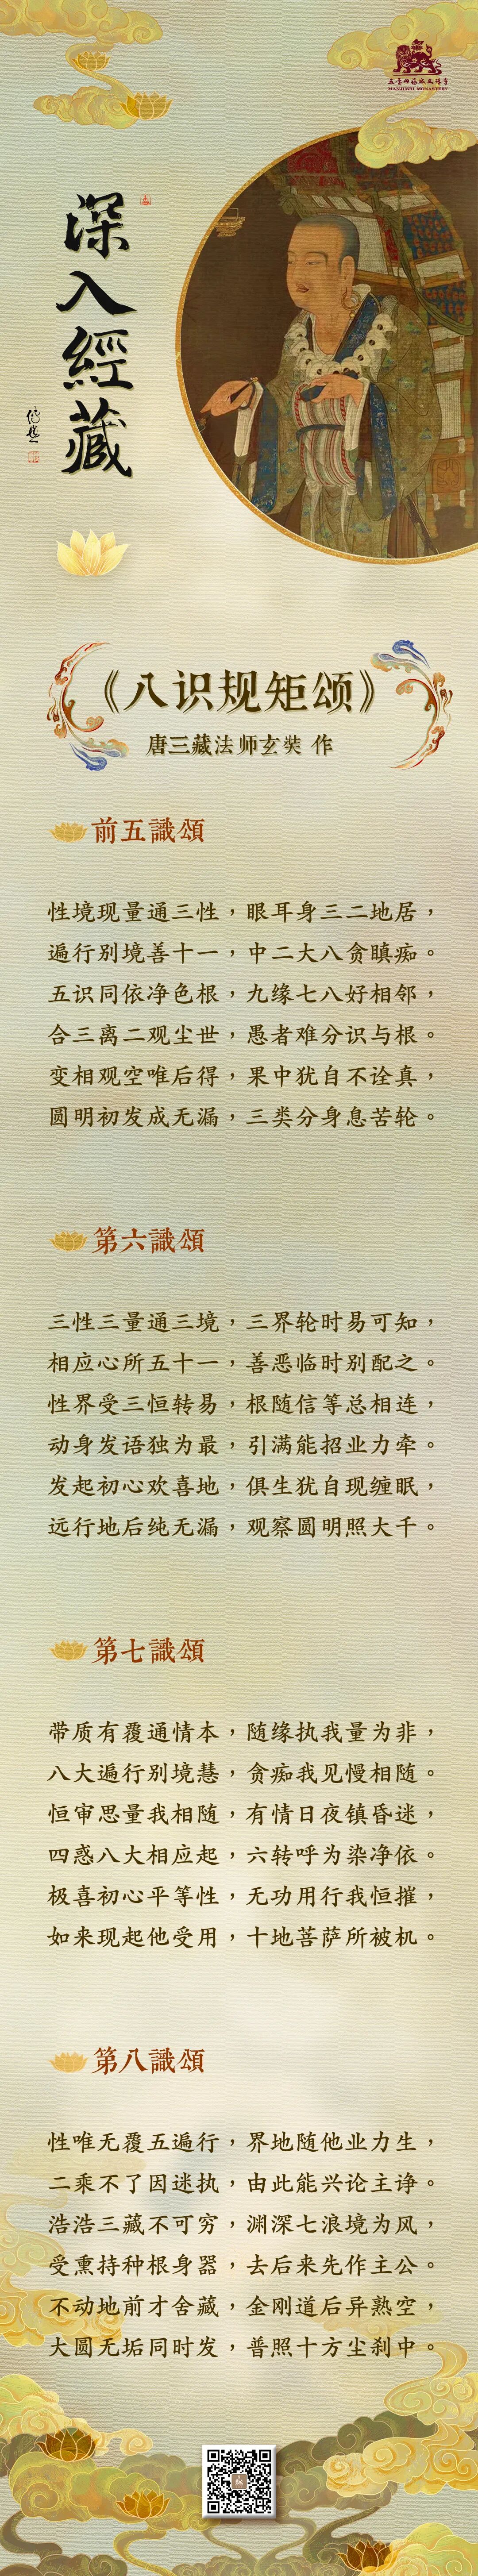 五臺四弘誠大講寺
MANJUSRI MONASTERY
深入經藏
《八识规矩颂》
唐三藏法师玄奘 作
前五識頌
性境现量通三性，眼耳身三二地居，
遍行别境善十一，中二大八贪瞋痴。
五识同依净色根，九缘七八好相邻，
合三离二观尘世，愚者难分识与根。
变相观空唯后得，果中犹自不诠真，
圆明初发成无漏，三类分身息苦轮。
第六識頌
三性三量通三境，三界轮时易可知，
相应心所五十一，善恶临时别配之。
性界受三恒转易，根随信等总相连，
动身发语独为最，引满能招业力牵。
发起初心欢喜地，俱生犹自现缠眠，
远行地后纯无漏，观察圆明照大千。
第七識頌
带质有覆通情本，随缘执我量为非，
八大遍行别境慧，贪痴我见慢相随。
恒审思量我相随，有情日夜镇昏迷，
四惑八大相应起，六转呼为染净依。
极喜初心平等性，无功用行我恒摧，
如来现起他受用，十地菩萨所被机。
第八識頌
性唯无覆五遍行，界地随他业力生，
二乘不了因迷执，由此能兴论主诤。
浩浩三藏不可穷，渊深七浪境为风，
受熏持种根身器，去后来先作主公。
不动地前才舍藏，金刚道后异熟空，
大圆无垢同时发，普照十方尘刹中。